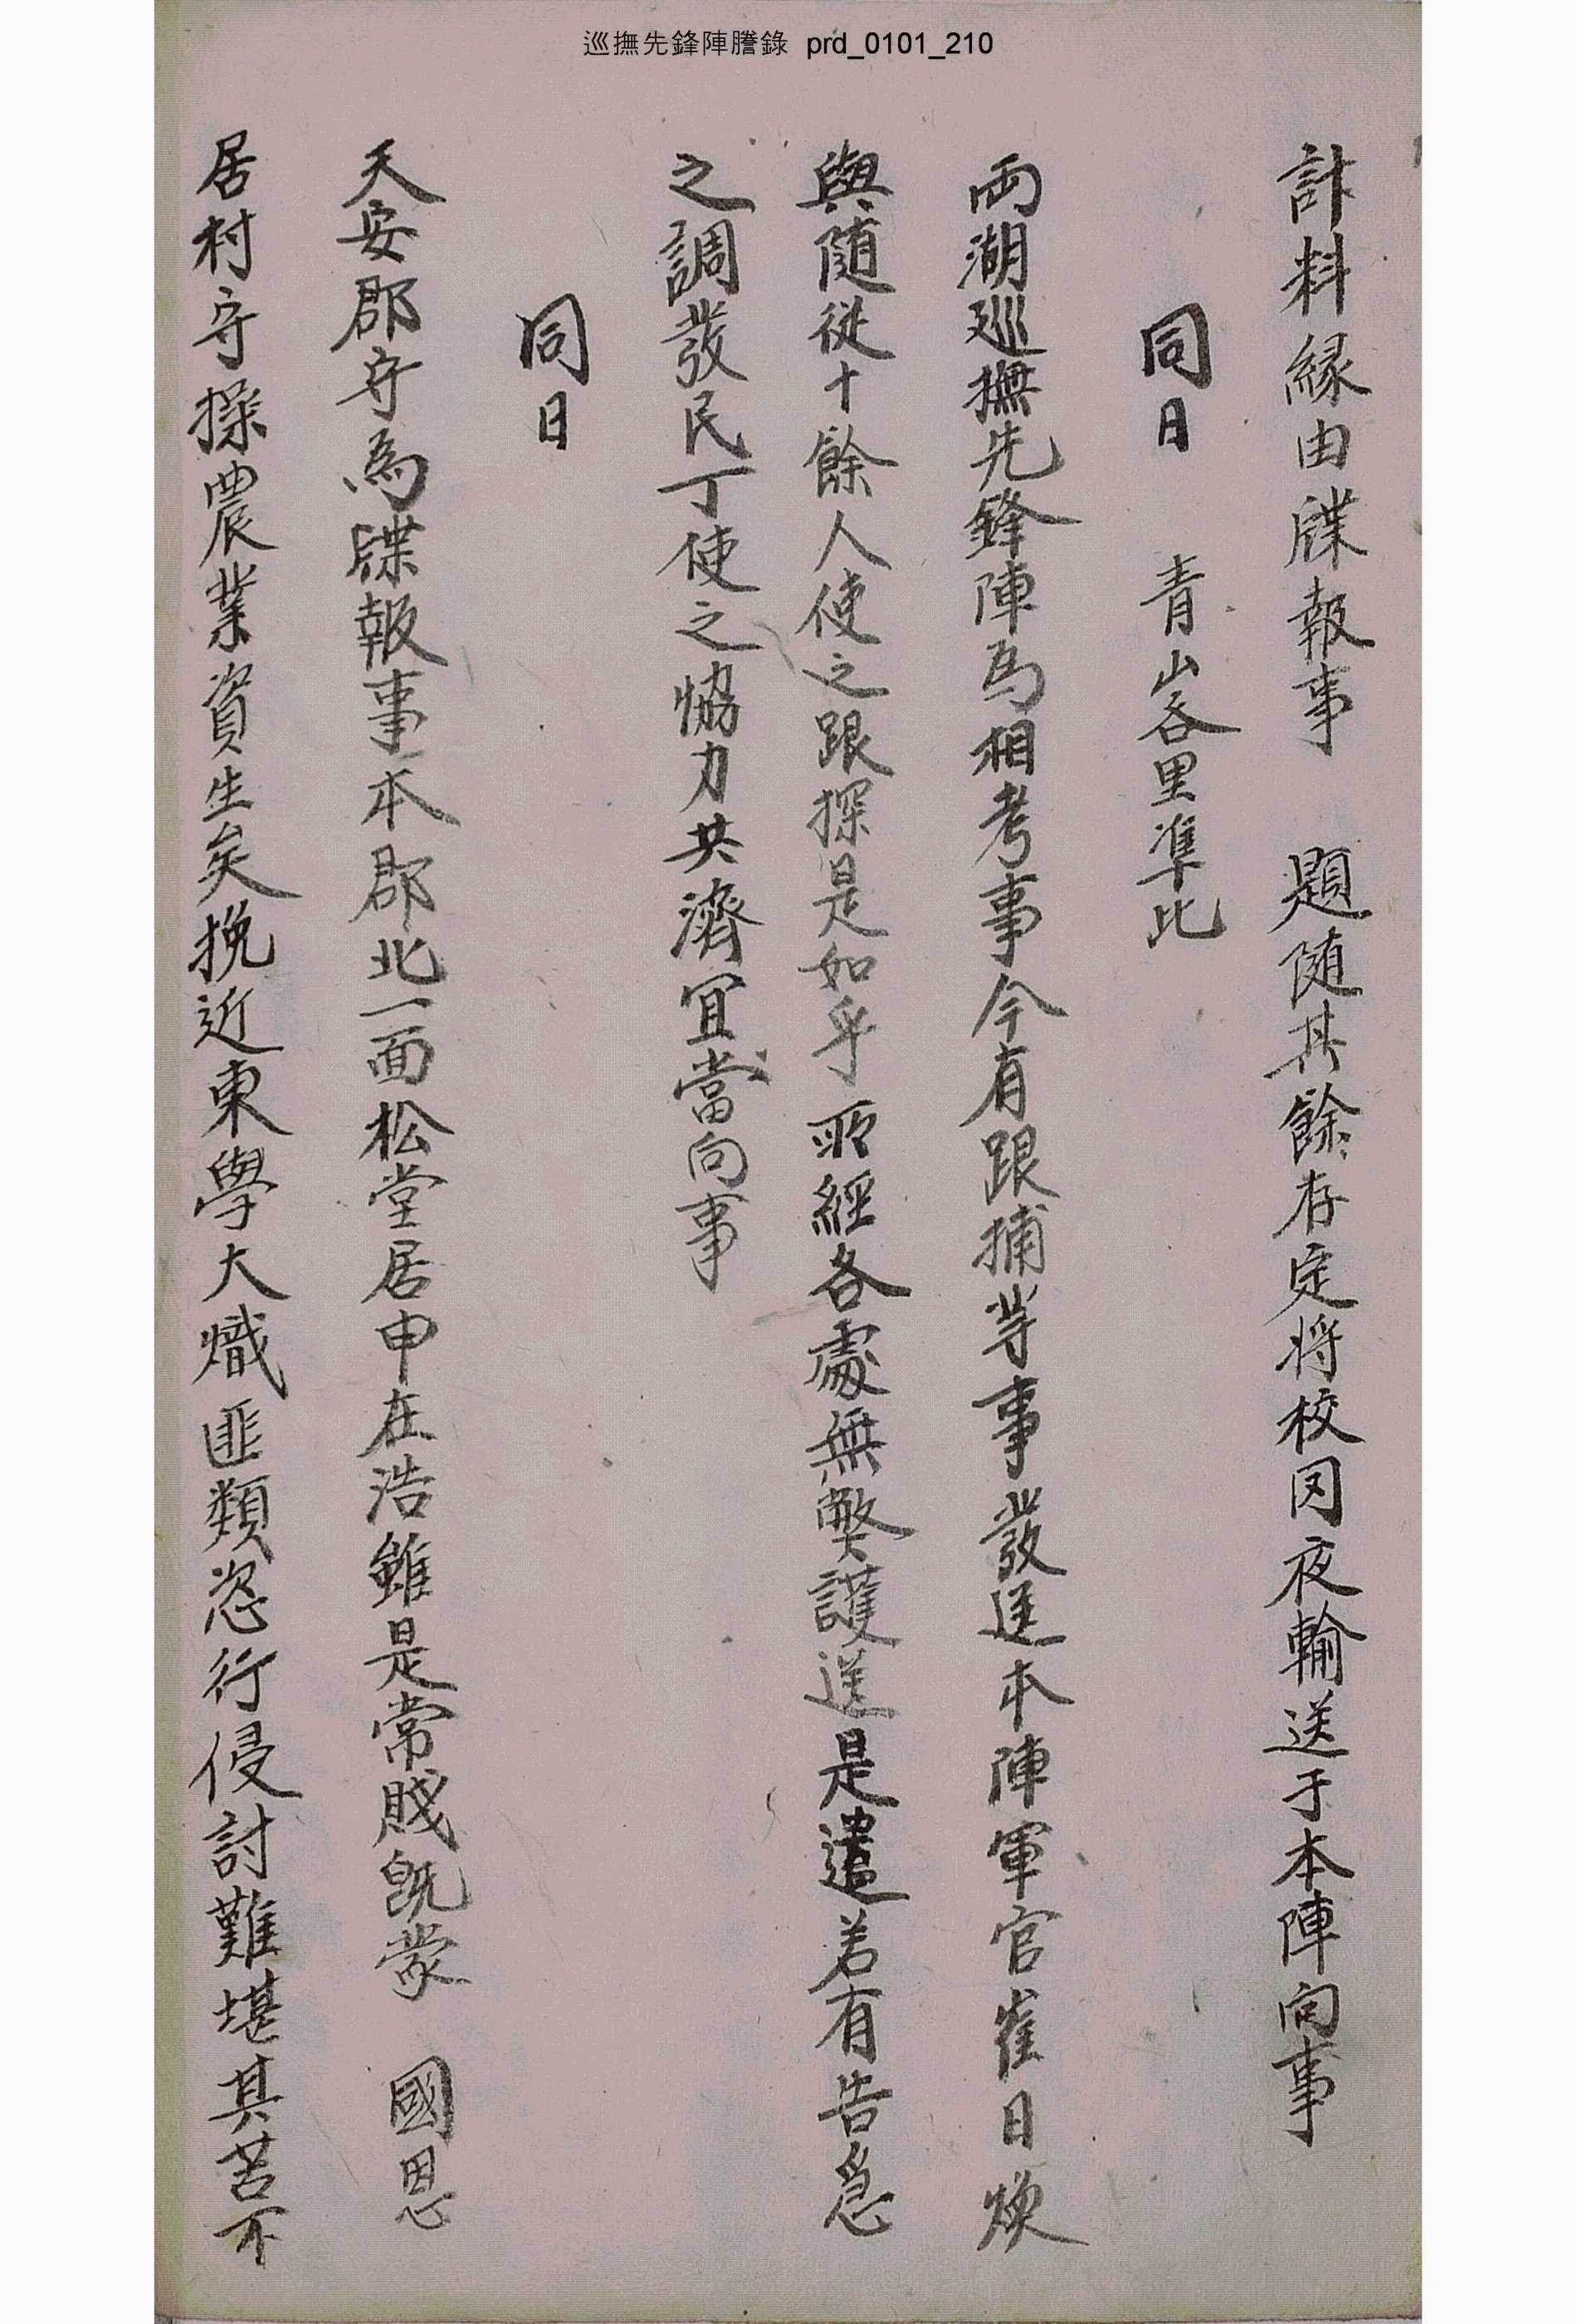 巡撫先鋒陣謄錄 prd_0101_210
計料緣由牒報事 題随其餘存定將校罔夜輸送于本陣向事
同日 青山各里準比
両湖廵撫先鋒陣爲相考事今有跟捕等事發送本陣軍官崔日煥
與隨從十餘人使之跟探是如乎所經各處無弊護送是遣若有告急
之調發民丁使之恊力共濟宜當向事
同日
天安郡守爲牒報事本郡北一面松堂居申在浩雖是常賤旣蒙 國恩
居村守操農業資生矣挽近東學大熾匪類恣行侵討難堪其苦不